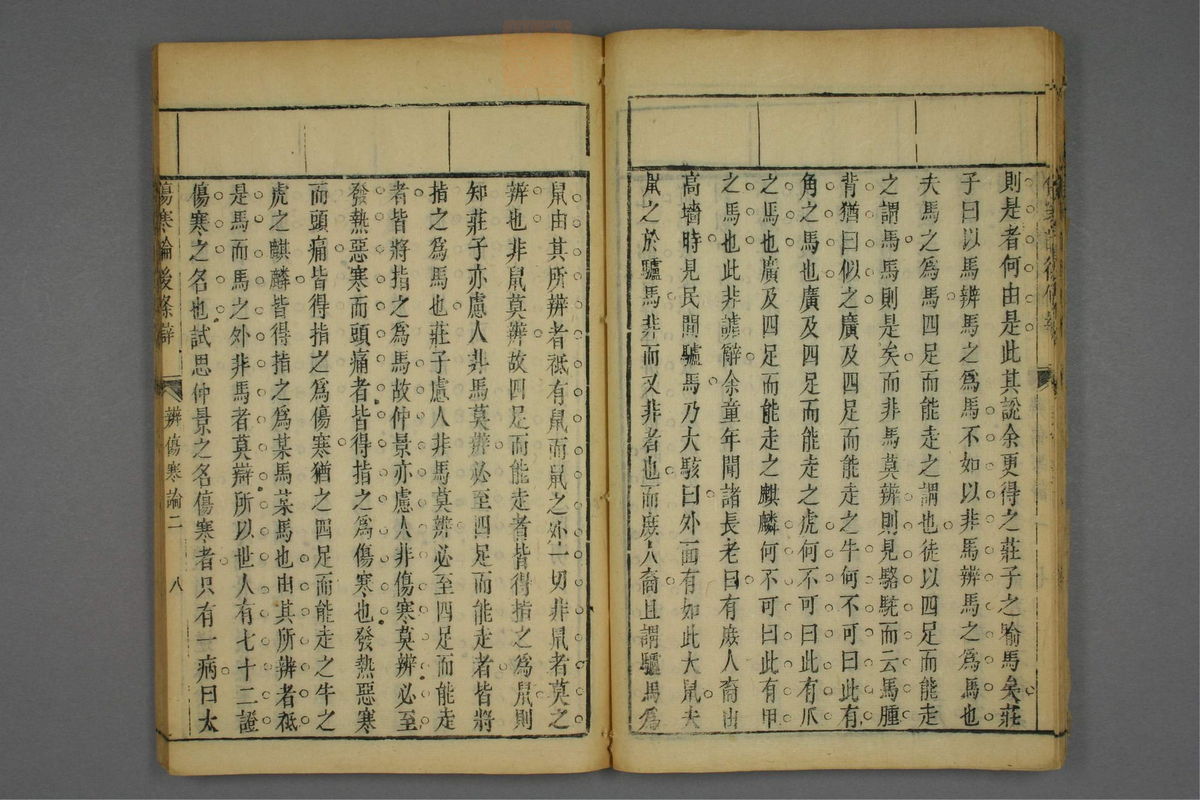 則是者何由是此其說余更得之莊子之喻馬矣莊
子曰以馬辨馬之爲馬不如以非馬辨馬之爲馬也
夫馬之爲馬四足而能走之謂也徒以四足而能走
之謂馬馬則是矣而非馬莫辨則見駱駝而云馬腫
背猶曰似之廣及四足而能走之牛何不可曰此有
角之馬也廣及四足而能走之虎何不可曰此有爪
之馬也廣及四足而能走之麒麟何不可曰此有甲
之馬也此非謔辭余童年聞諸長老曰有庶人裔由
高墻時見民間驢馬乃大駭曰外面有如此大鼠夫
鼠之於驢馬非而又非者也而庶人裔且謂驢馬爲
鼠由其所辨者祗有鼠而鼠之外一切非鼠者莫之
辨也非鼠莫辨故四足而能走者皆得指之爲鼠則
知莊子亦慮人非馬莫辨必至四足而能走者皆將
指之爲馬也莊子慮人非馬莫辨必至四足而能走
者皆將指之爲馬故仲景亦慮人非傷寒莫辨必至
發熱惡寒而頭痛者皆得指之爲傷寒也發熱惡寒
而頭痛皆得指之爲傷寒猶之四足而能走之牛之
虎之麒麟皆得指之爲某馬某馬也由其所辨者祗
是馬而馬之外非馬者莫辯所以世人有七十二證
傷寒之名也試思仲景之名傷寒者只有一病曰太
傷寒論後條辯
辨傷寒論二
八